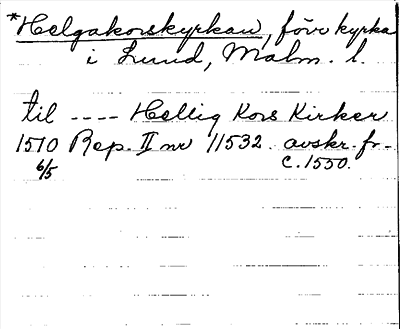 *Helgakorskyrkan, förr kyrka
i Lund, Malm. l.
til ---- Hellig Kors Kirker
1510 Rep. II nr 11532. avskr. fr.
6/5 c. 1550.